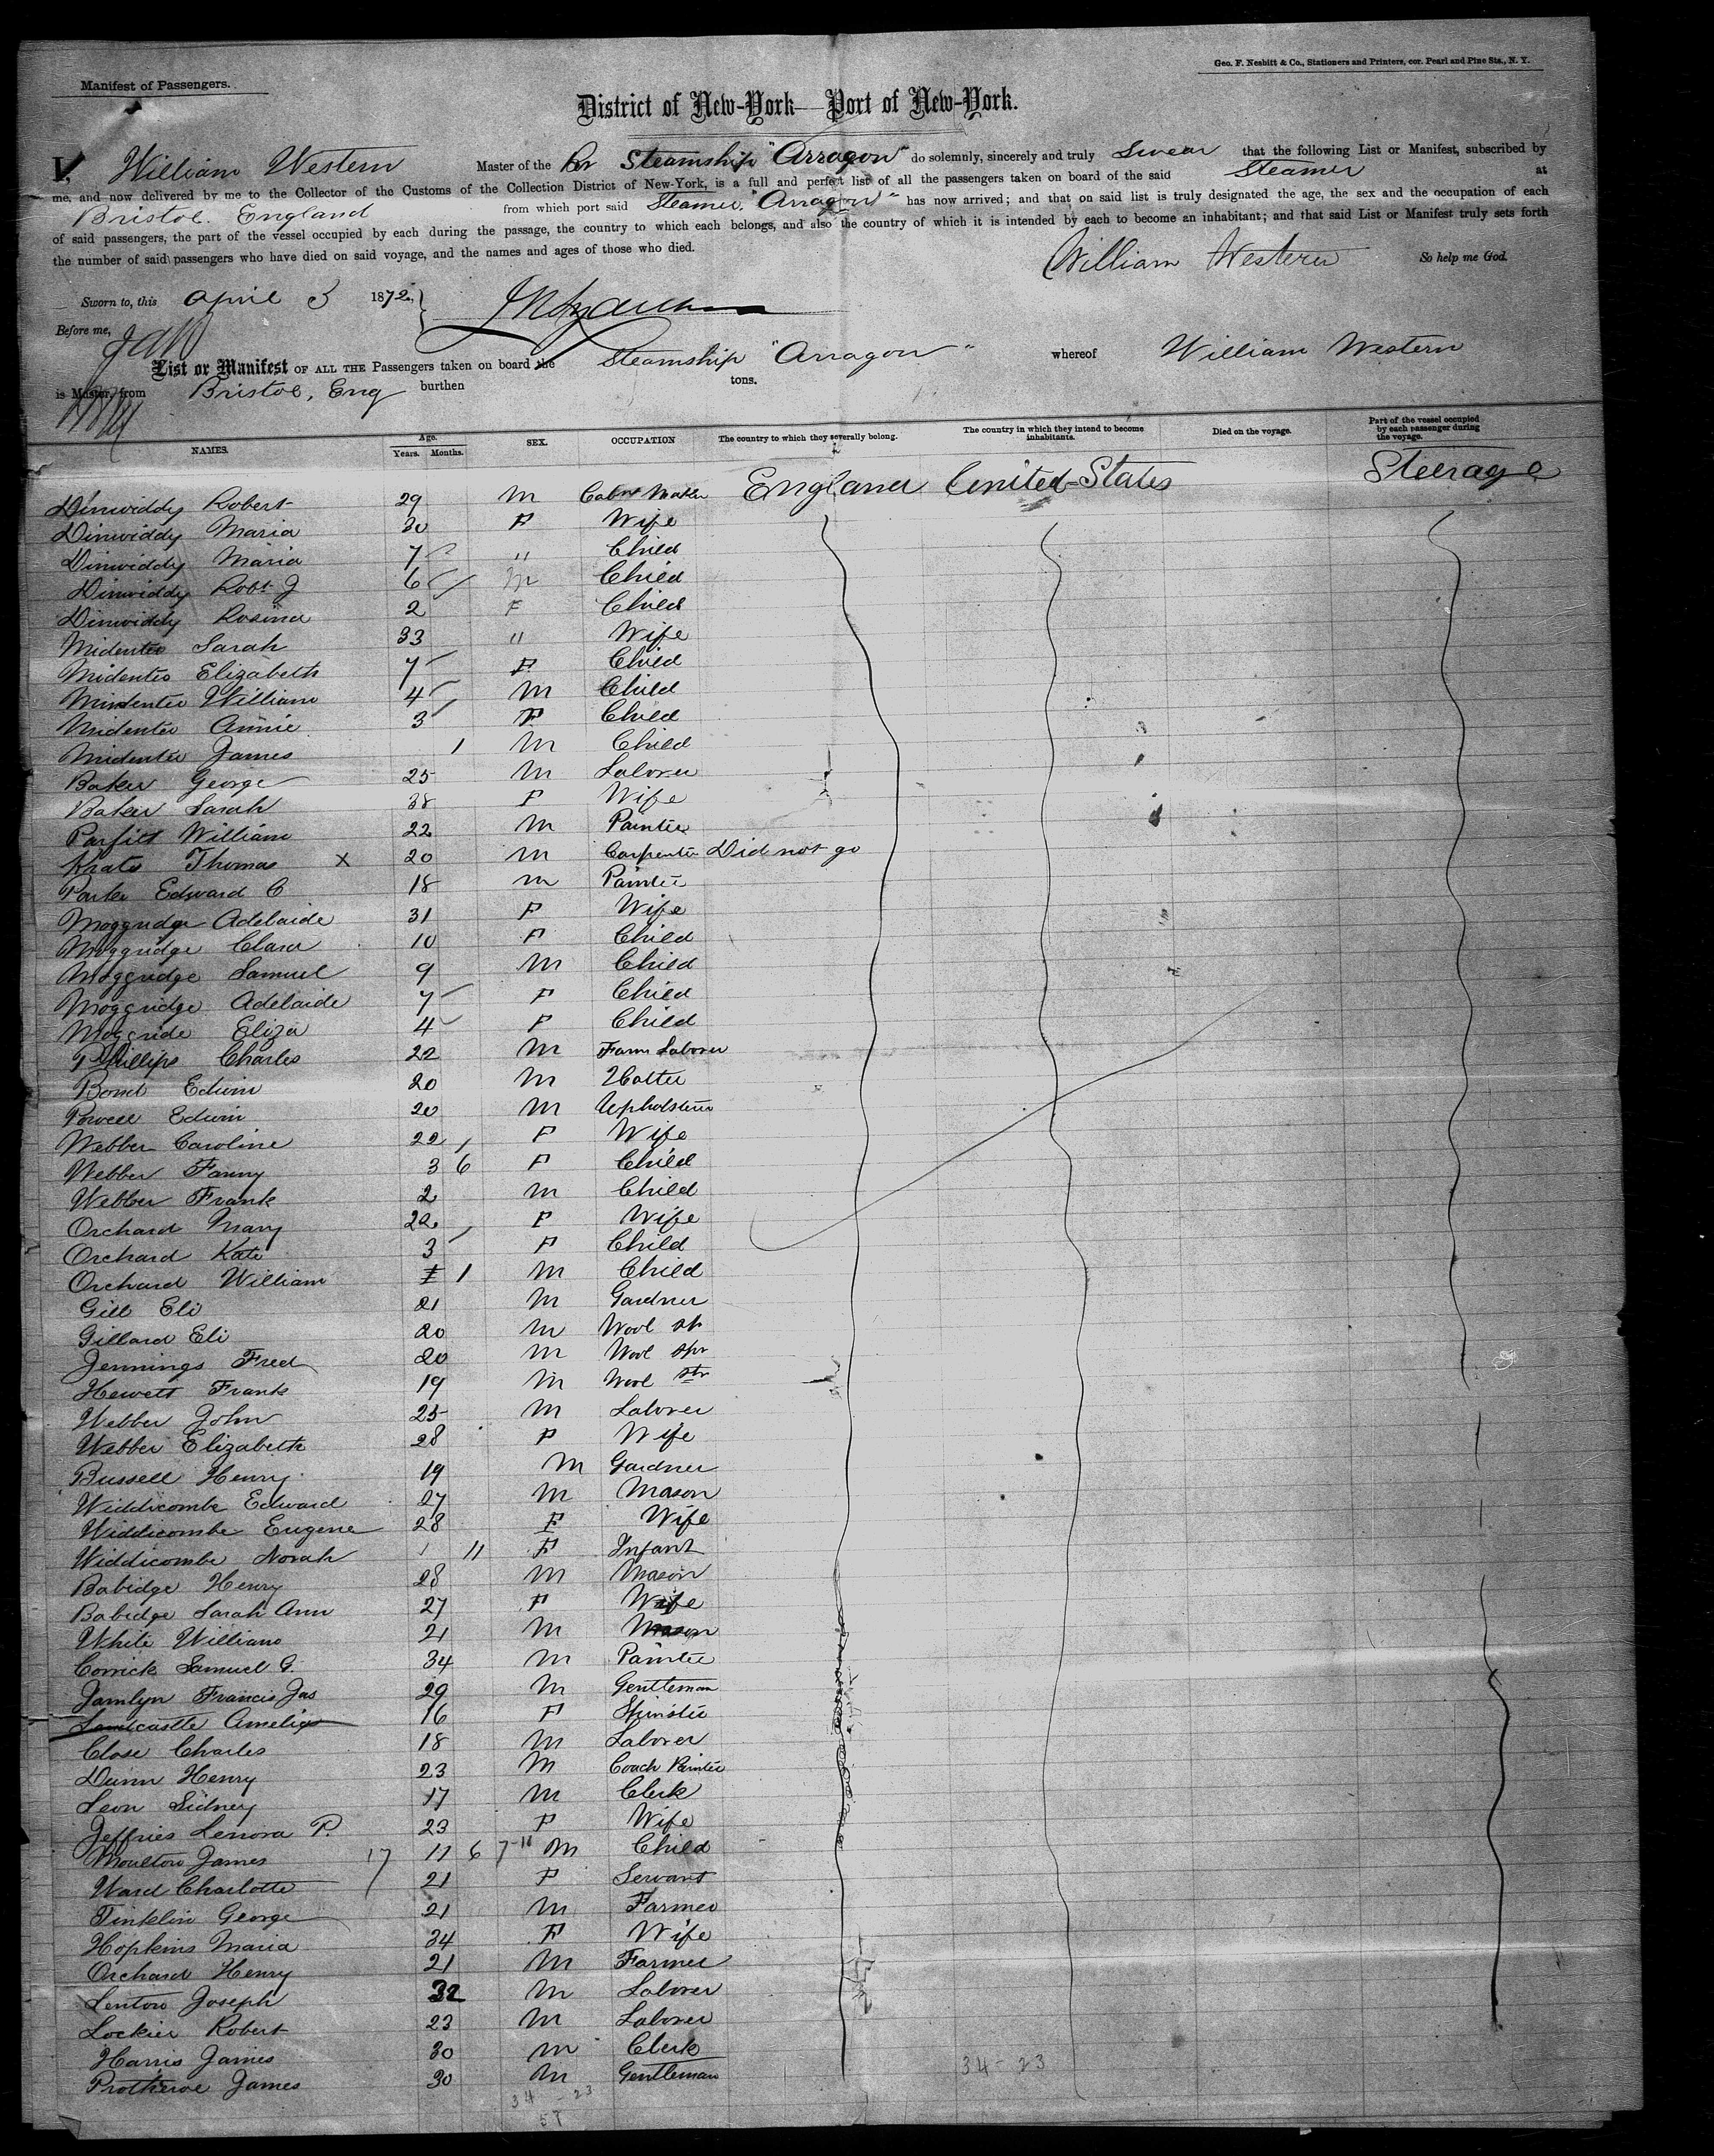 Manifest of Passengers.
Geo. F. Nesbitt & Co., Stationers and Printers, cor. Pearl and Pine Sts., N. Y.
District of New-York—Port of New-York.
I, William Western Master of the Br Steamship "Arragon" do solemnly, sincerely and truly Swear that the following List or Manifest, subscribed by
me, and now delivered by me to the Collector of the Customs of the Collection District of New-York, is a full and perfect list of all the passengers taken on board of the said Steamer at
Bristol. England from which port said Steamer "Arragon" has now arrived; and that on said list is truly designated the age, the sex and the occupation of each
of said passengers, the part of the vessel occupied by each during the passage, the country to which each belongs, and also the country of which it is intended by each to become an inhabitant; and that said List or Manifest truly sets forth
the number of said passengers who have died on said voyage, and the names and ages of those who died.
William Western So help me God.
Sworn to, this April 3 1872
Before me,
List or Manifest OF ALL THE Passengers taken on board the Steamship "Arragon" whereof William Western
is Master, from Bristol, Eng burthen tons.
NAMES. Age. Years. Months. SEX. OCCUPATION The country to which they severally belong. The country in which they intend to become inhabitants. Died on the voyage. Part of the vessel occupied by each passenger during the voyage.
Dinwiddy Robert 29 M Cabnt Maker England United States Steerage
Dinwiddy Maria 30 F Wife
Dinwiddy Maria 7 " Child
Dinwiddy Robt J 6 M Child
Dinwiddy Rosina 2 F Child
Midenter Sarah 33 " Wife
Midenter Elizabeth 7 F Child
Midenter William 4 M Child
Midenter Annie 3 F Child
Midenter James 1 M Child
Baker George 25 M Laborer
Baker Sarah 38 F Wife
Parfitt William 22 M Painter
Thomas X 20 M Carpenter Did not go
Parker Edward C 18 M Painter
Moggridge Adelaide 31 F Wife
Moggridge Clara 10 F Child
Moggridge Samuel 9 M Child
Moggridge Adelaide 7 F Child
Moggride Eliza 4 F Child
Phillips Charles 22 M Farm Laborer
Bond Edwin 20 M Hatter
Powell Edwin 20 M Upholsterer
Webber Caroline 22 F Wife
Webber Fanny 3 6 F Child
Webber Frank 2 M Child
Orchard Mary 22 F Wife
Orchard Kate 3 F Child
Orchard William 1 M Child
Gill Eli 21 M Gardner
Gillard Eli 20 M Wool
Jennings Fred 20 M Wool
Hewett Frank 19 M Wool
Webber John 25 M Laborer
Webber Elizabeth 28 F Wife
Bussell Henry 19 M Gardner
Widdicombe Edward 27 M Mason
Widdicombe Eugene 28 F Wife
Widdicombe Norah 11 F Infant
Babidge Henry 28 M Mason
Babidge Sarah Ann 27 F Wife
White William 21 M Mason
Corrick Samuel G. 34 M Painter
Jamlyn Francis Jas 29 M Gentleman
Landcastle Amelia 16 F Spinster
Close Charles 18 M Laborer
Dunn Henry 23 M Coach Painter
Leon Sidney 17 M Clerk
Jeffries Lenora P. 23 F Wife
Moulton James 17 11 6 7-11 M Child
Ward Charlotte 21 F Servant
Tinklin George 21 M Farmer
Hopkins Maria 34 F Wife
Orchard Henry 21 M Farmer
Lenton Joseph 32 M Laborer
Lockier Robert 23 M Laborer
Harris James 30 M Clerk
Protheroe James 30 M Gentleman
34 - 23 34 - 23
57